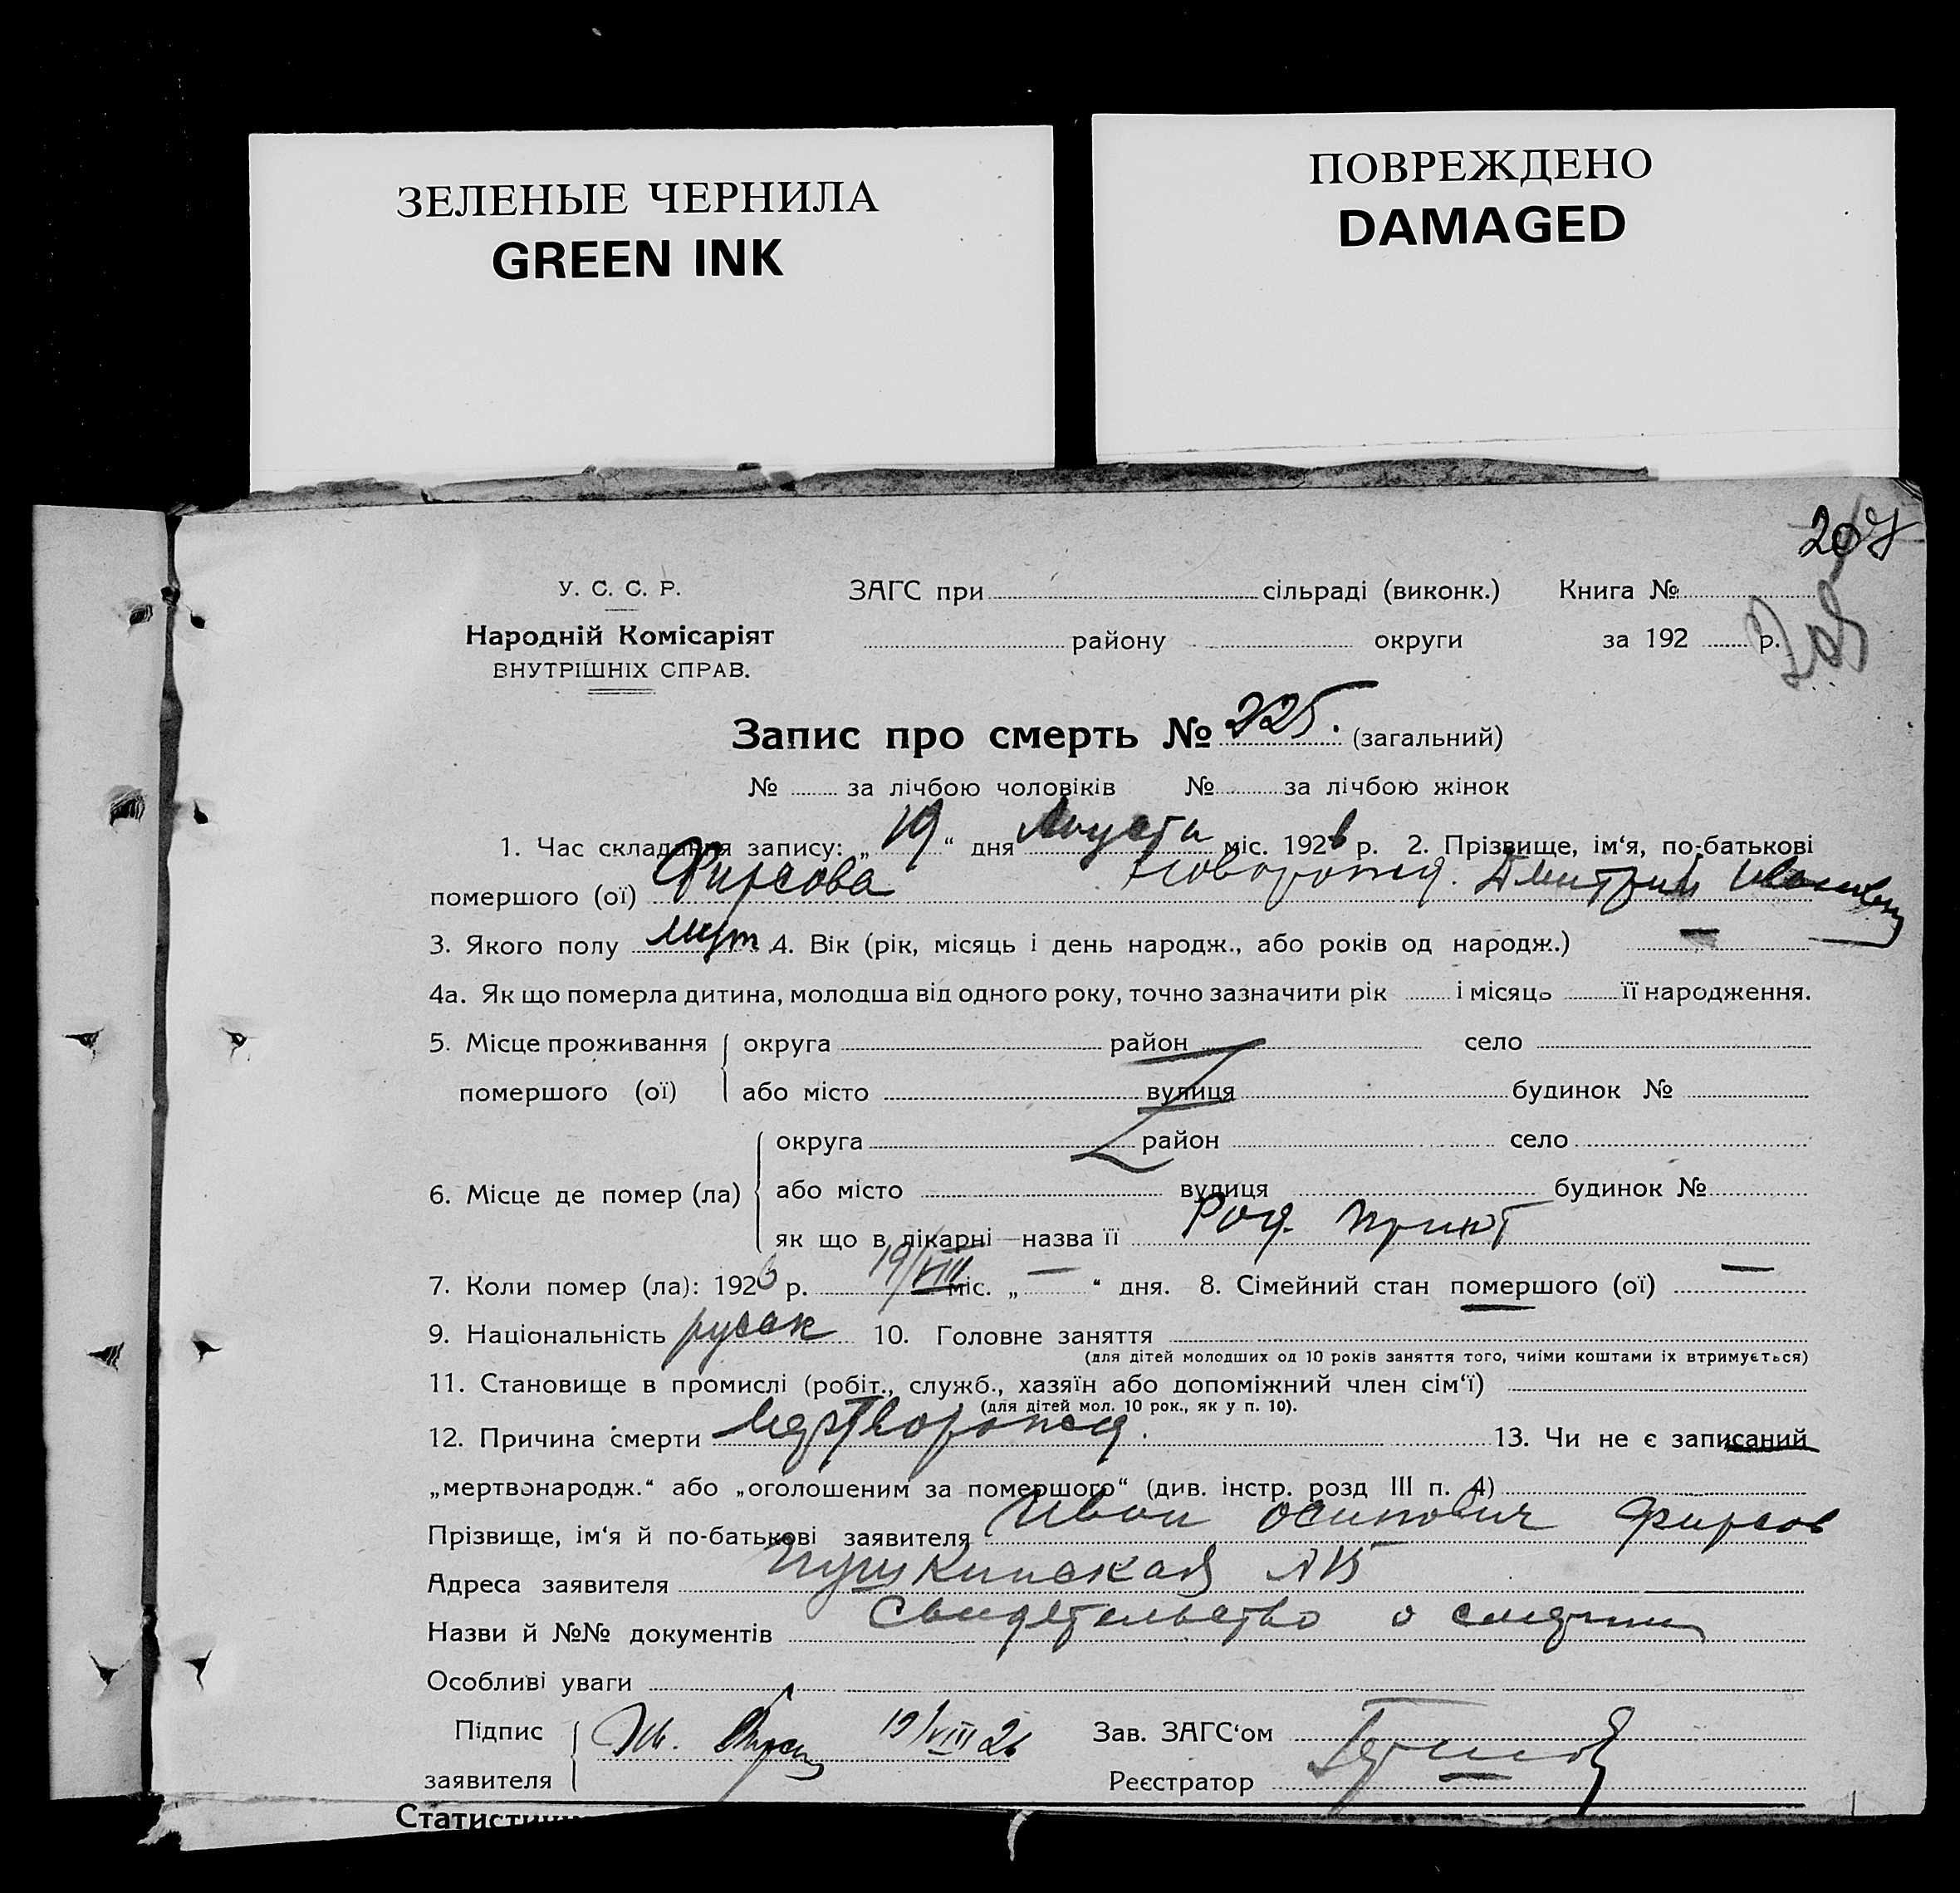 ЗЕЛЕНЫЕ ЧЕРНИЛА
GREEN INK
ПОВРЕЖДЕНО
DAMAGED
207
У. С. С. Р.
Народній Комісаріят
ВНУТРІШНІХ СПРАВ.
ЗАГС при сільраді (виконк.) Книга №
району округи за 192 р.
Запис про смерть № 225. (загальний)
№ за лічбою чоловіків № за лічбою жінок
1. Час складання запису: „19“ дня Августа міс. 1926 р. 2. Прізвище, ім‘я, по-батькові
помершого (ої) Фирсова новорожд. Дмитрий Иванович
3. Якого полу муж 4. Вік (рік, місяць і день народж., або років од народж.) —
4а. Як що померла дитина, молодша від одного року, точно зазначити рік і місяць її народження.
5. Місце проживання округа район село
помершого (ої) або місто вулиця будинок №
округа район село
6. Місце де помер (ла) або місто вулиця будинок №
як що в лікарні—назва її Род. приют
7. Коли помер (ла): 1926 р. 19/VIII міс. „—“ дня. 8. Сімейний стан помершого (ої) —
9. Національність русск 10. Головне заняття
(для дітей молодших од 10 років заняття того, чиїми коштами їх втримується)
11. Становище в промислі (робіт., служб., хазяїн або допоміжний член сім‘ї)
(для дітей мол. 10 рок., як у п. 10).
12. Причина смерти Мертворожд. 13. Чи не є записаний
„мертвонародж.“ або „оголошеним за помершого“ (див. інстр. розд III п. 4)
Прізвище, ім‘я й по-батькові заявителя Иван Осипович Фирсов
Адреса заявителя Пушкинская №
Назви й №№ документів Свидетельство о смерти
Особливі уваги
Підпис Ив. Фирсов 19/VIII 26 Зав. ЗАГС‘ом
заявителя Реєстратор